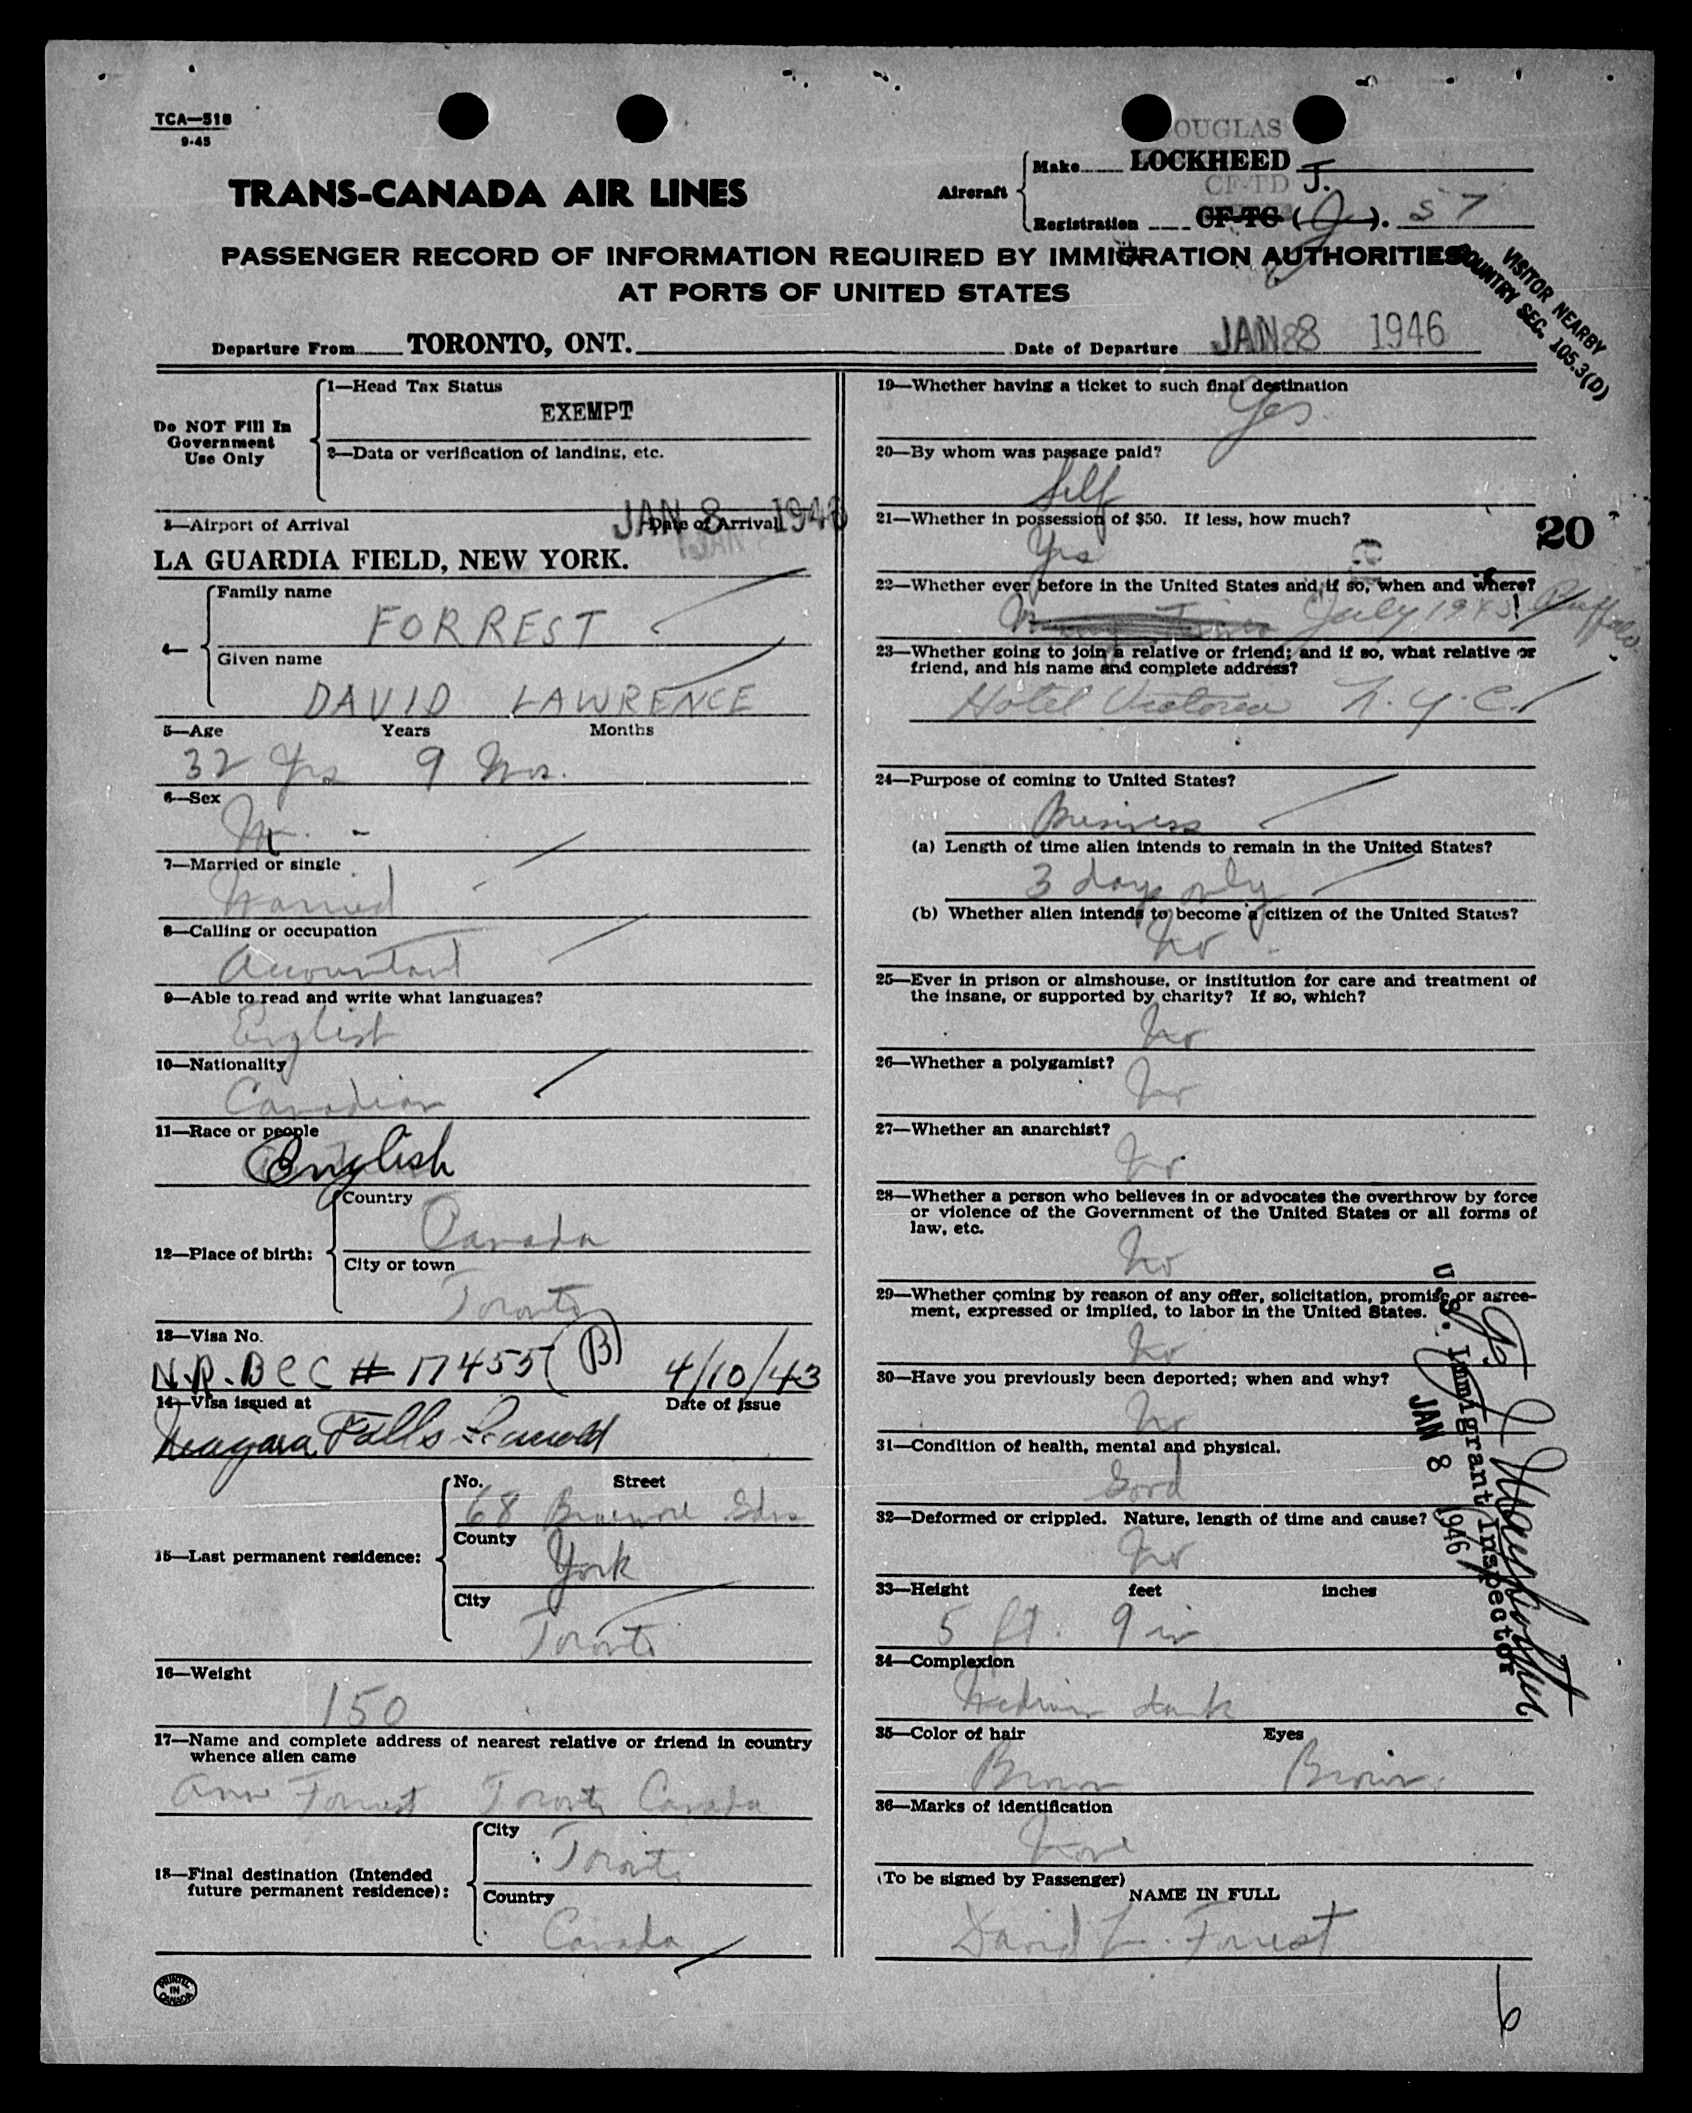 TCA—518
9-45
TRANS-CANADA AIR LINES
Aircraft
DOUGLAS
Make LOCKHEED J.
CF-TD
Registration CF-TG (J). 57
PASSENGER RECORD OF INFORMATION REQUIRED BY IMMIGRATION AUTHORITIES
AT PORTS OF UNITED STATES
VISITOR NEARBY
COUNTRY SEC. 105.3(D)
Departure From TORONTO, ONT.
Date of Departure JAN 8 1946
Do NOT Fill In
Government
Use Only
1—Head Tax Status
EXEMPT
2—Data or verification of landing, etc.
3—Airport of Arrival
Date of Arrival
JAN 8 1946
LA GUARDIA FIELD, NEW YORK.
4—
Family name
FORREST
Given name
DAVID LAWRENCE
5—Age Years Months
32 Yrs 9 Mos.
6—Sex
M.
7—Married or single
Married
8—Calling or occupation
Accountant
9—Able to read and write what languages?
English
10—Nationality
Canadian
11—Race or people
English
12—Place of birth:
Country
Canada
City or town
Toronto
13—Visa No.
N.R.BCC # 17455 (B) 4/10/43
14—Visa issued at Date of Issue
Niagara Falls
15—Last permanent residence:
No. Street
68 Braemore Gdns
County
York
City
Toronto
16—Weight
150
17—Name and complete address of nearest relative or friend in country
whence alien came
Ann Forrest Toronto Canada
18—Final destination (Intended
future permanent residence):
City
Toronto
Country
Canada
PRINTED
IN
CANADA
19—Whether having a ticket to such final destination
Yes.
20—By whom was passage paid?
Self
21—Whether in possession of $50. If less, how much?
Yes
20
22—Whether ever before in the United States and if so, when and where?
Many Times July 1945 Buffalo
23—Whether going to join a relative or friend; and if so, what relative or
friend, and his name and complete address?
Hotel Victoria N.Y.C.
24—Purpose of coming to United States?
Business
(a) Length of time alien intends to remain in the United States?
3 days only
(b) Whether alien intends to become a citizen of the United States?
No
25—Ever in prison or almshouse, or institution for care and treatment of
the insane, or supported by charity? If so, which?
No
26—Whether a polygamist?
No
27—Whether an anarchist?
No
28—Whether a person who believes in or advocates the overthrow by force
or violence of the Government of the United States or all forms of
law, etc.
No
29—Whether coming by reason of any offer, solicitation, promise or agree-
ment, expressed or implied, to labor in the United States.
No
30—Have you previously been deported; when and why?
No
31—Condition of health, mental and physical.
Good
32—Deformed or crippled. Nature, length of time and cause?
No
U.S. Immigrant Inspector
JAN 8 1946
33—Height feet inches
5 ft. 9 in
34—Complexion
Medium dark
35—Color of hair Eyes
Brown Brown
36—Marks of identification
None
(To be signed by Passenger)
NAME IN FULL
David L. Forrest
6